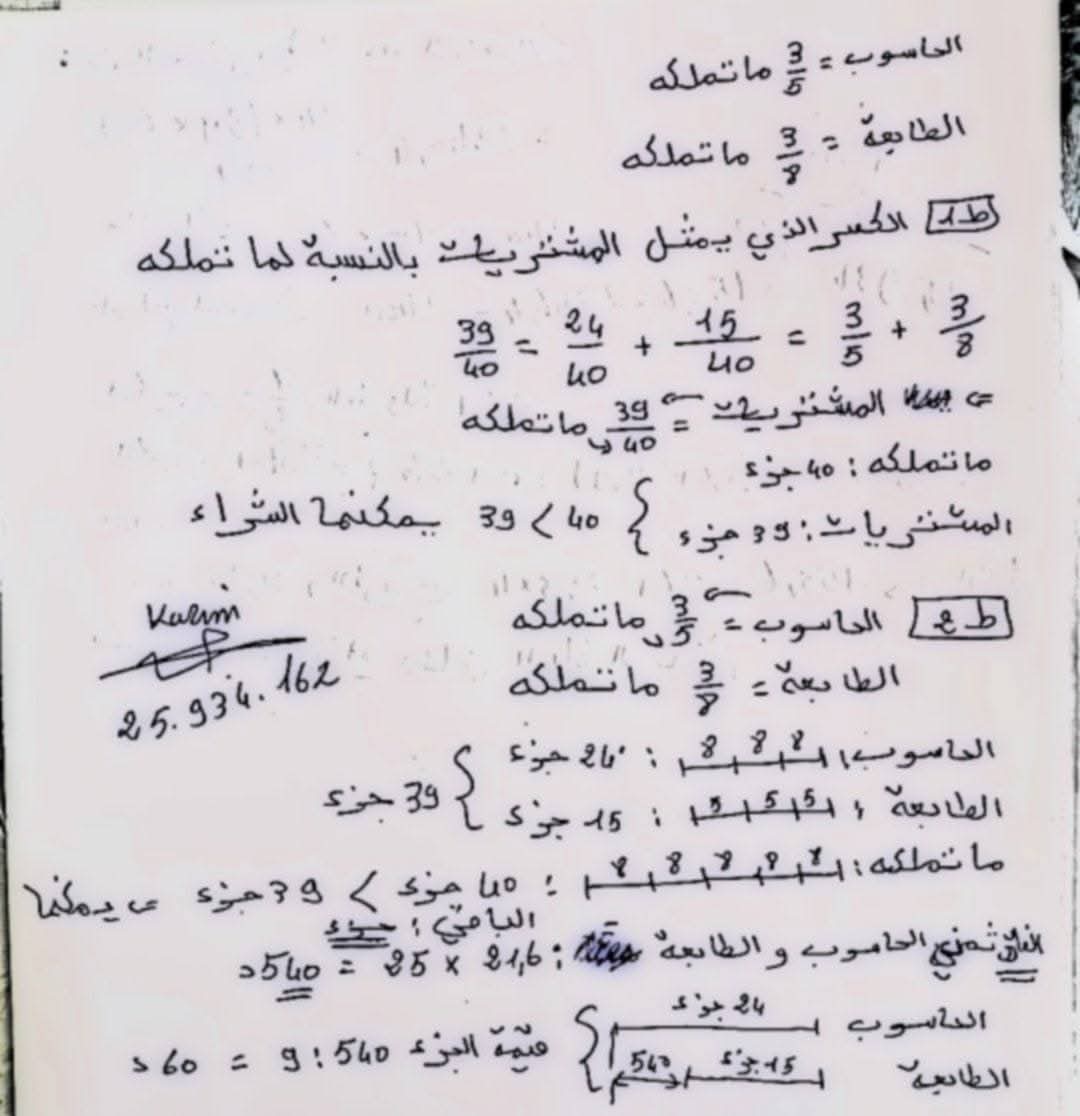 الحاسوب = 3/5 ما تملكه
الطابعة = 3/8 ما تملكه
ط1 الكسر الذي يمثل المشتريات بالنسبة لما تملكه
3/8 + 3/5 = 15/40 + 24/40 = 39/40
المشتريات = 39/40 ما تملكه
ما تملكه : 40 جزء
المشتريات : 39 جزء } 40 > 39 يمكنها الشراء
ط2 الحاسوب = 3/5 ما تملكه
الطابعة = 3/8 ما تملكه
Karim
25.934.162
الحاسوب : 8 8 8 : 24 جزء
الطابعة : 5 5 5 : 15 جزء } 39 جزء
ما تملكه : 8 8 8 8 8 : 40 جزء > 39 جزء يمكنها
الباقي : جزء
ثمني الحاسوب و الطابعة : 21,6 × 25 = 540 د
الحاسوب 24 جزء
الطابعة 15 جزء 540 } قيمة الجزء 540 : 9 = 60 د